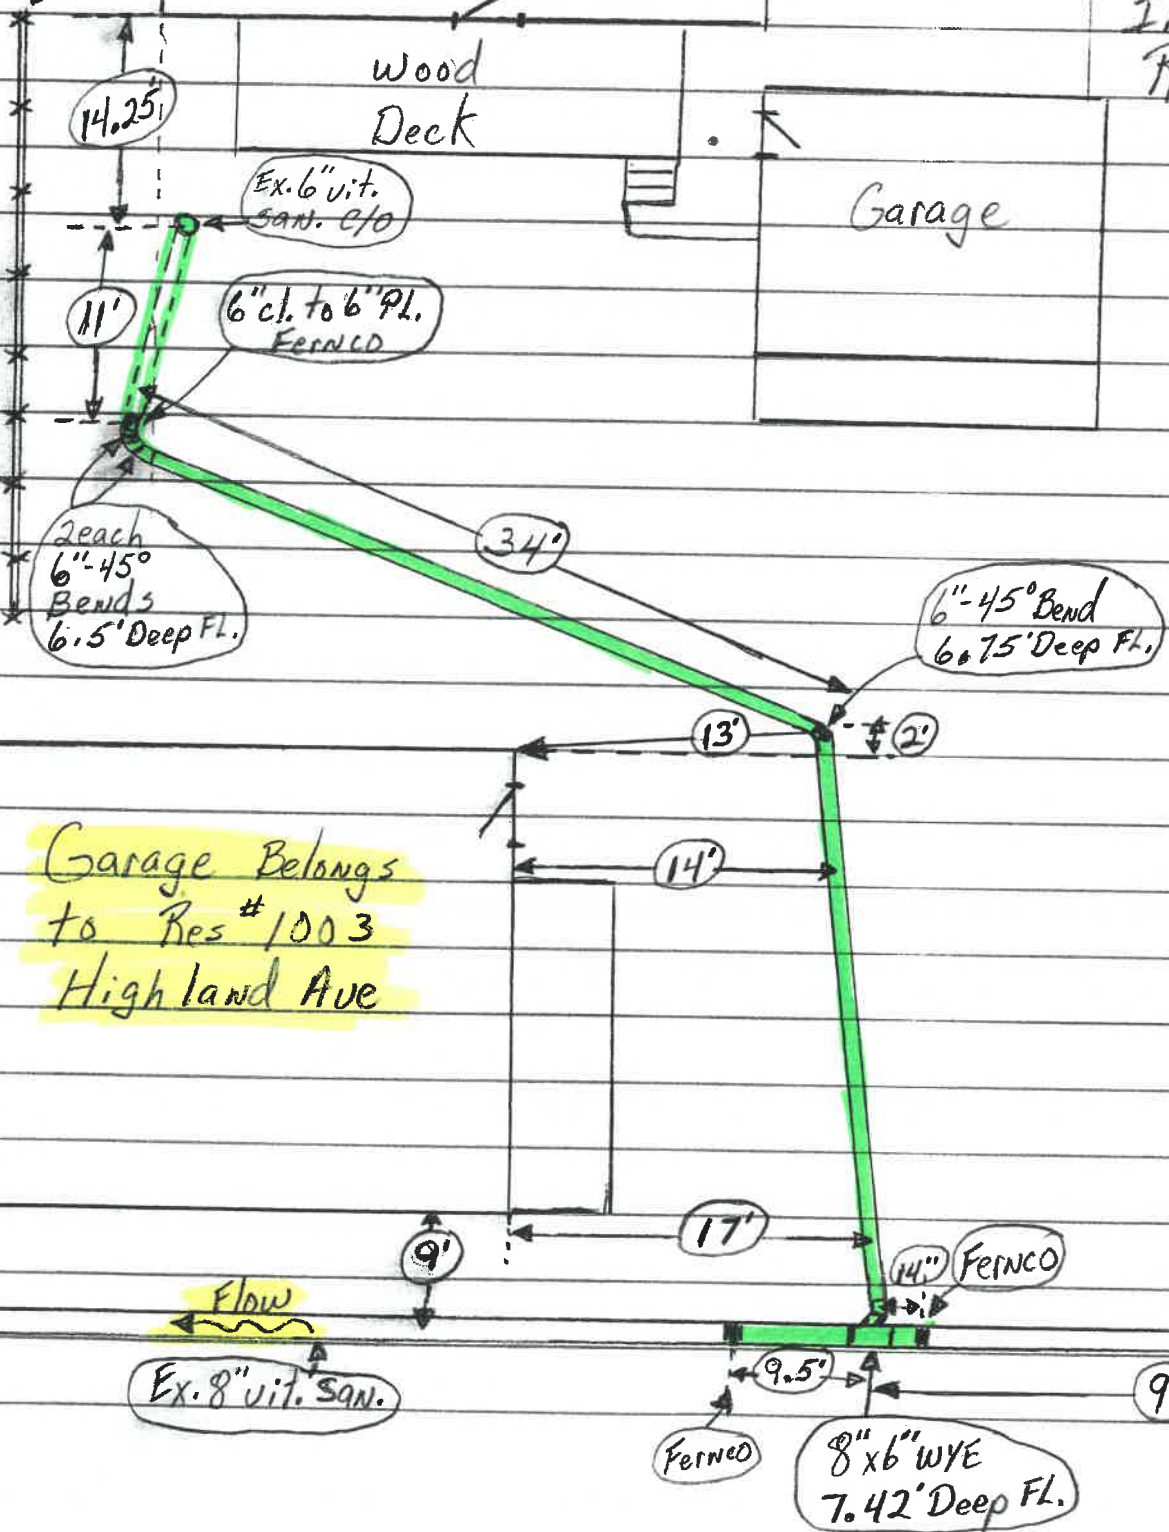 Wood
Deck
14.25'
Ex. 6" vit.
San. C/O
Garage
11'
6" cl. to 6" PL.
Fernco
34'
2 each
6"-45°
Bends
6.5' Deep FL.
6"-45° Bend
6.75' Deep FL.
13'
2'
14'
Garage Belongs
to Res #1003
Highland Ave
17'
9'
14"
Fernco
Flow
Ex. 8" vit. San.
9.5'
9
Fernco
8"x6" WYE
7.42' Deep FL.